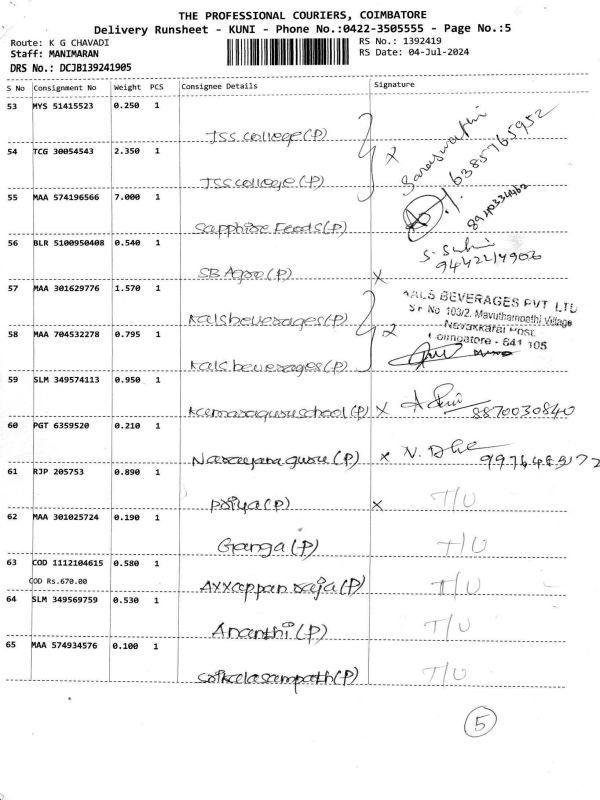 THE PROFESSIONAL COURIERS, COIMBATORE
Delivery Runsheet - KUNI - Phone No.:0422-3505555 - Page No.:5
Route: K G CHAVADI
RS No.: 1392419
Staff: MANIMARAN
RS Date: 04-Jul-2024
DRS No.: DCJB139241905
S No Consignment No Weight PCS Consignee Details Signature
53 MYS 51415523 0.250 1
JSS college (P)
54 TCG 30054543 2.350 1
x
JSS college (P)
Saraswathi
6385765952
55 MAA 574196566 7.000 1
Sapphire Feeds (P)
8940334462
56 BLR 5100950408 0.540 1
SB Agro (P) x
9442214902
57 MAA 301629776 1.570 1
Kals beverages (P)
KALS BEVERAGES PVT LTD
S F No 103/2, Mavuthampathi Village
Navakkarai Post,
Coimbatore - 641 105
58 MAA 704532278 0.795 1
Kals beverages (P)
59 SLM 349574113 0.950 1
Kumaraguru school (P) x 8870030840
60 PGT 6359520 0.210 1
Narayana guru (P) x
61 RJP 205753 0.890 1
Priya (P) x T/U
62 MAA 301025724 0.190 1
Ganga (P) T/U
63 COD 1112104615 0.580 1
COD Rs.670.00
Ayyappan raja (P) T/U
64 SLM 349569759 0.530 1
Ananthi (P) T/U
65 MAA 574934576 0.100 1
Srikala sampath (P) T/U
5